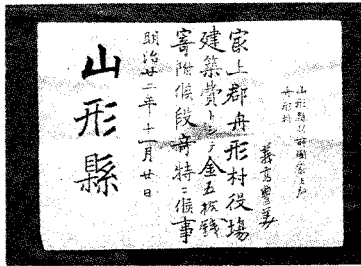 山形縣羽前國㝡上郡
舟形村
㝡上郡舟形村役場
建築費トシテ金五拾錢
寄附候段奇特ニ候事
明治廿二年十一月廿日
山形縣